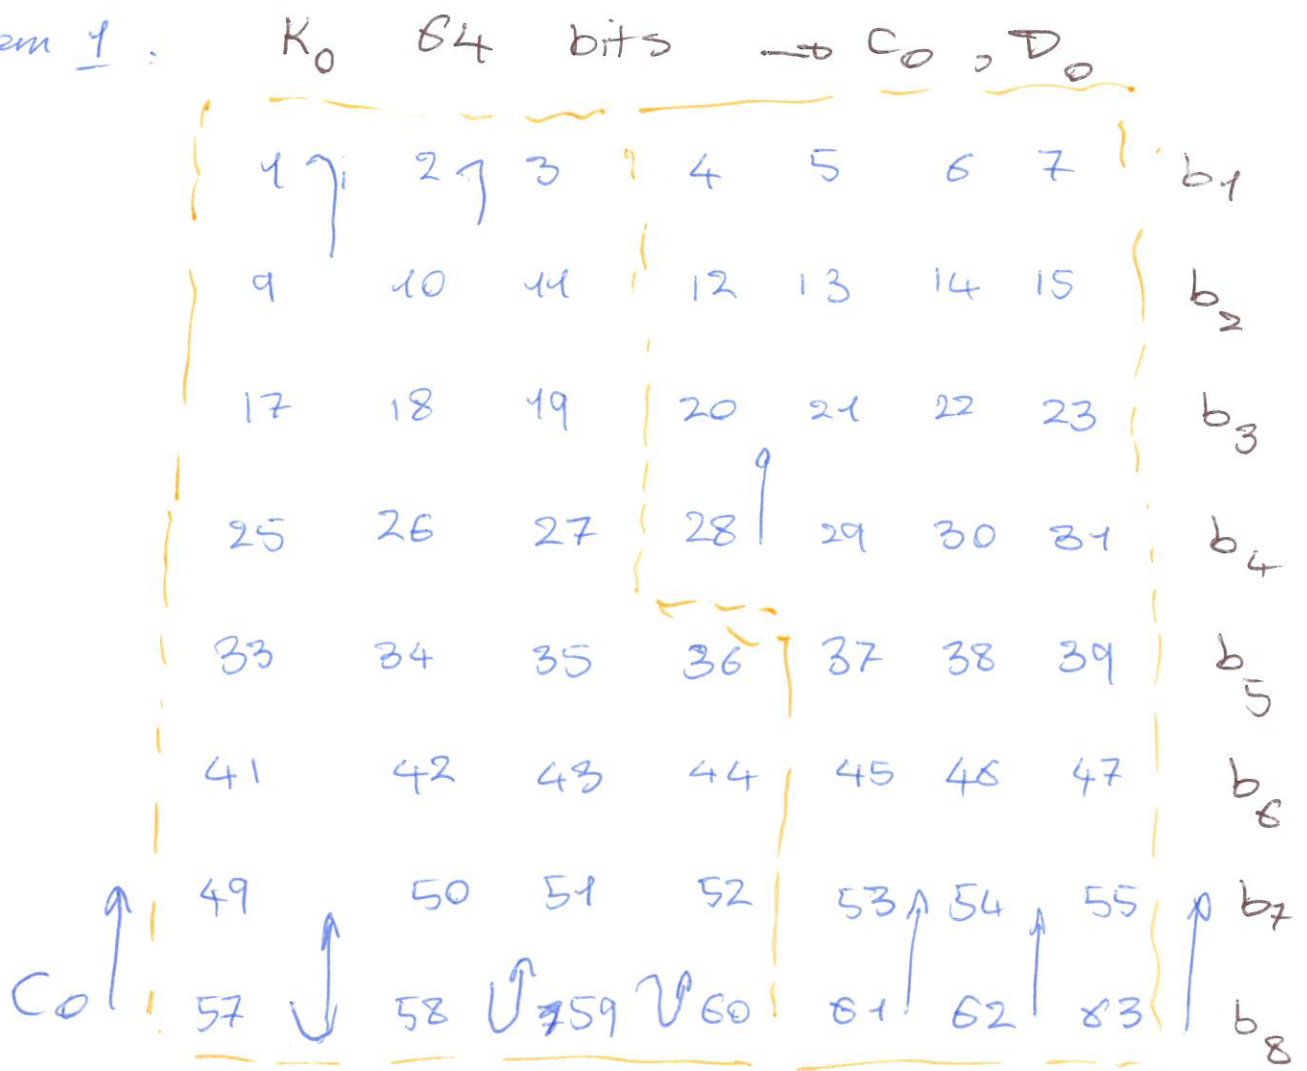 em 1. K0 64 bits → C0, D0
1 2 3 4 5 6 7 b1
9 10 11 12 13 14 15 b2
17 18 19 20 21 22 23 b3
25 26 27 28 29 30 31 b4
33 34 35 36 37 38 39 b5
41 42 43 44 45 46 47 b6
49 50 51 52 53 54 55 b7
C0 57 58 59 60 61 62 63 b8